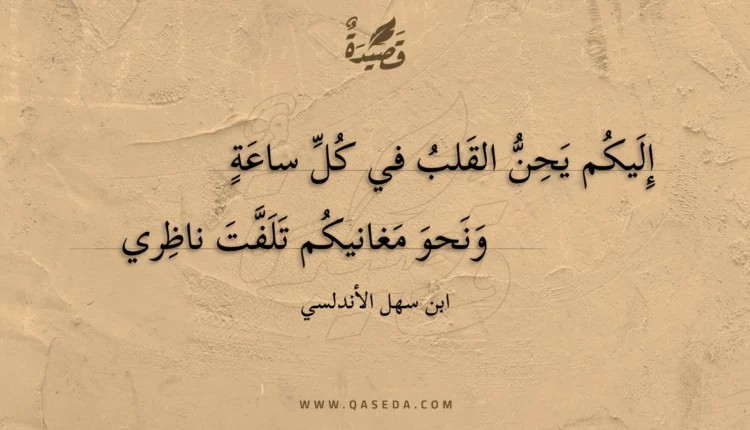 قَصِيدَةٌ
إِلَيكُم يَحِنُّ القَلبُ في كُلِّ ساعَةٍ
وَنَحوَ مَغانيكُم تَلَفَّتَ ناظِري
ابن سهل الأندلسي
WWW.QASEDA.COM